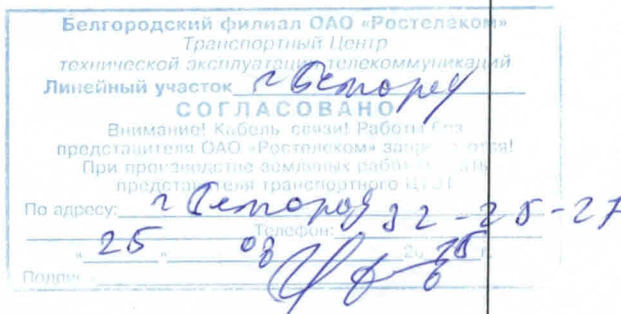 Белгородский филиал ОАО «Ростелеком»
Транспортный Центр
технической эксплуатации телекоммуникаций
Линейный участок г Белгород
СОГЛАСОВАНО
Внимание! Кабель связи! Работы без
представителя ОАО «Ростелеком»
При производстве земляных работ
представителя транспортного
По адресу: г Белгород 32-25-27
Телефон:
"25" 03 20
Подпись